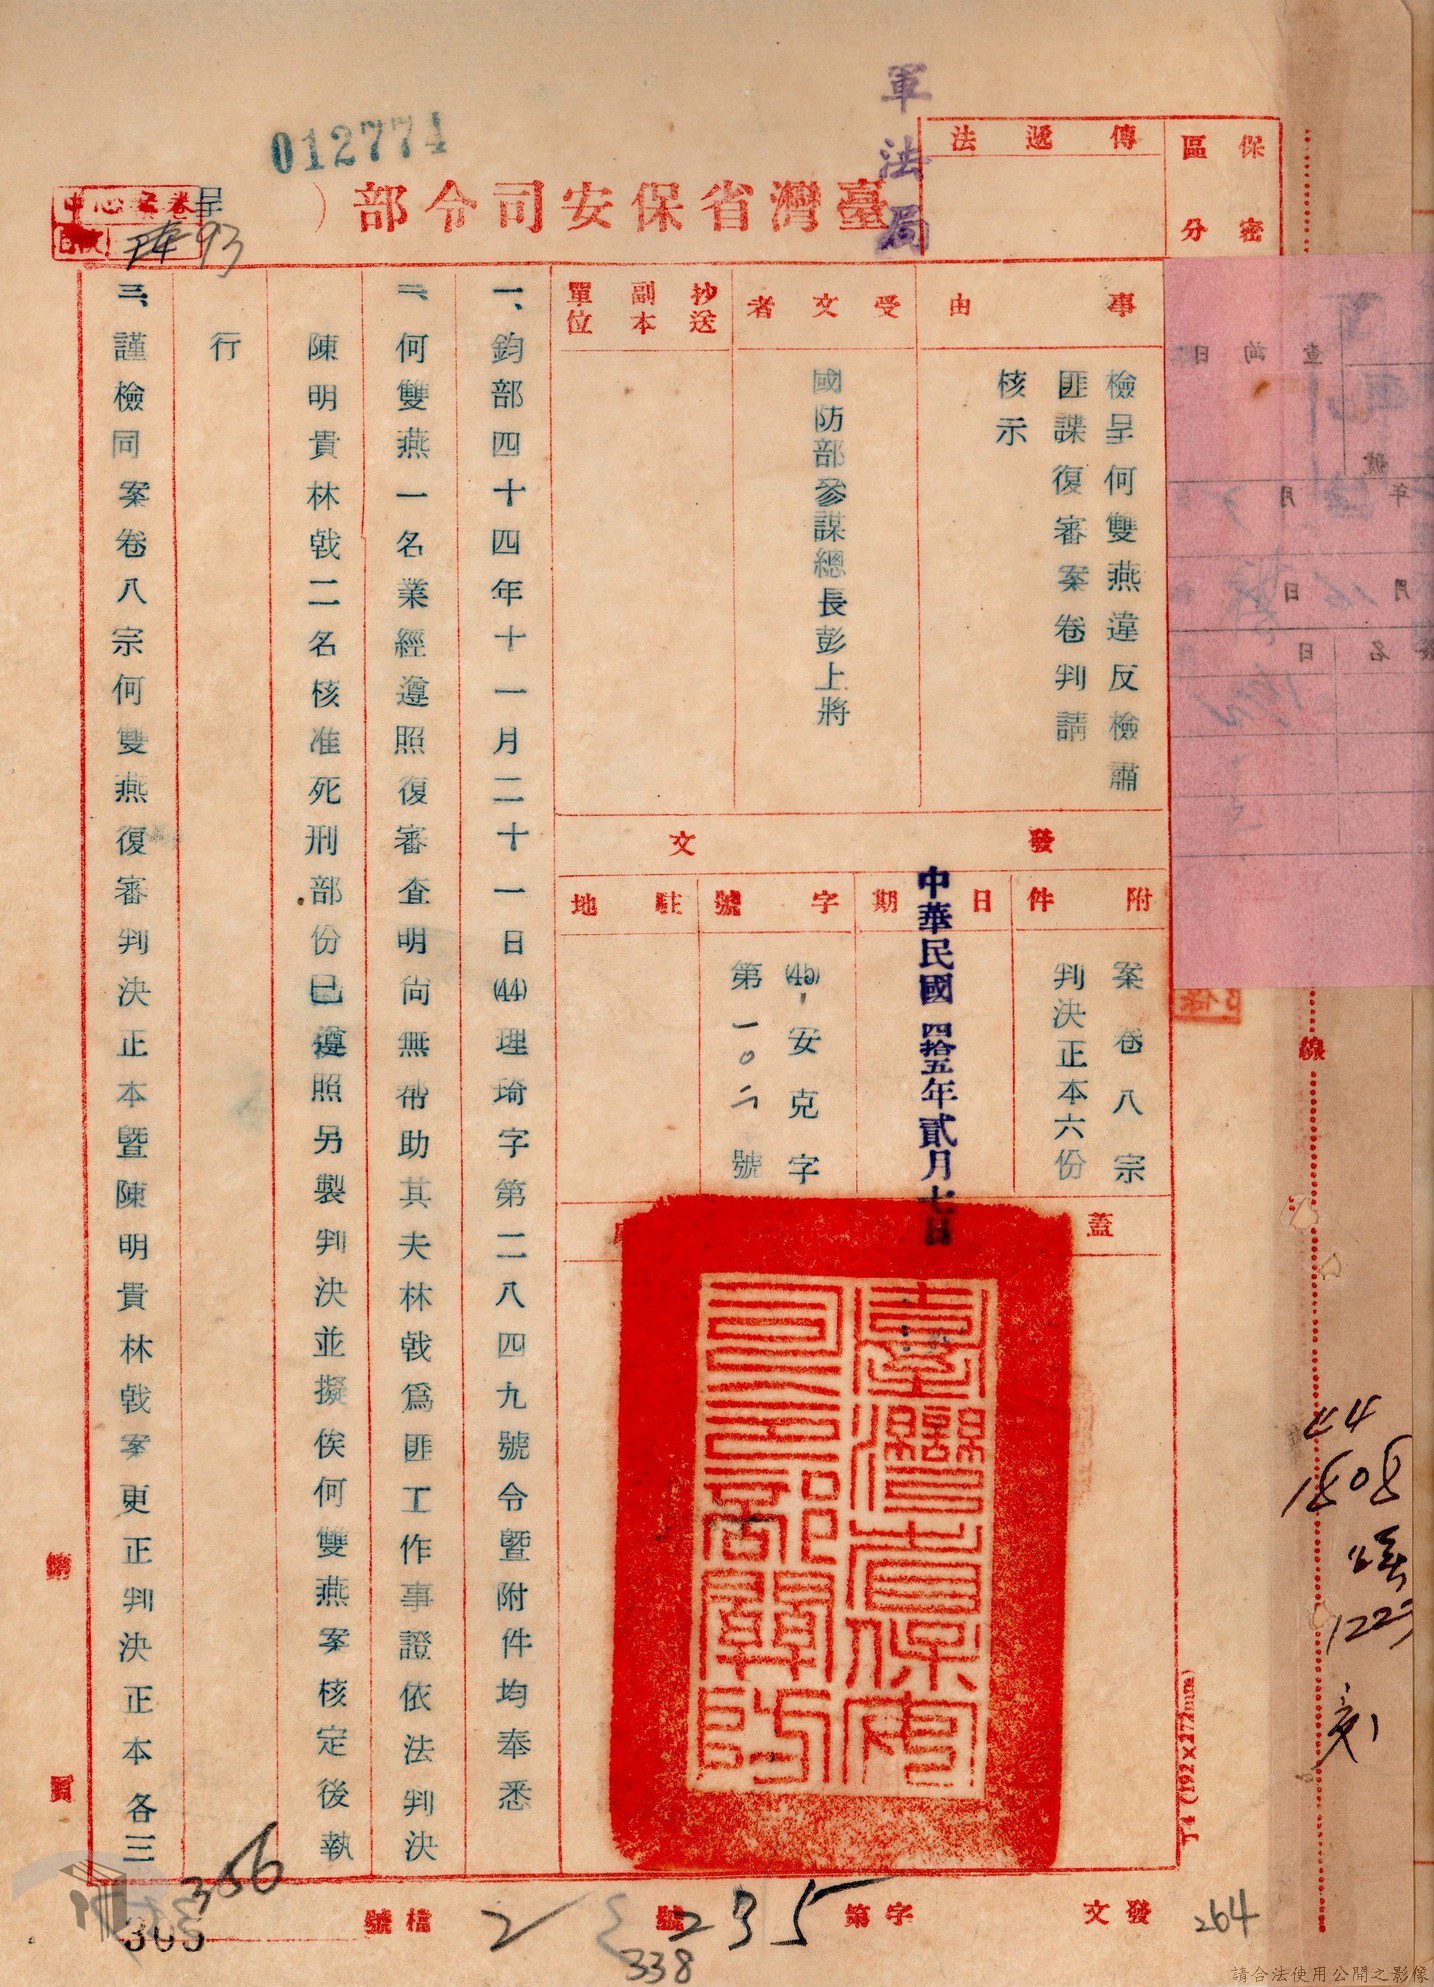 軍法局
012774
臺灣省保安司令部（
呈
保密
區分
傳遞法
事由
檢呈何雙燕違反檢肅
匪諜復審案卷判請
核示
受文者
國防部參謀總長彭上將
抄送
副本
單位
發文
附件
案卷八宗
判決正本六份
日期
中華民國四拾五年貳月七日
字號
(45)安克字
第一〇二號
駐地
蓋
臺灣省保安司令部關防
一、鈞部四十四年十一月二十一日(44)理琦字第二八四九號令暨附件均奉悉
二、何雙燕一名業經遵照復審查明尚無幫助其夫林戟為匪工作事證依法判決
陳明貴林戟二名核准死刑部份已遵照另製判決並擬俟何雙燕案核定後執
行
三、謹檢同案卷八宗何雙燕復審判決正本暨陳明貴林戟案更正判決正本各三
線
44
1808
1223
丁4（192×272mm）
第
頁
發文
字第
235
號
2
檔號
356
305
338
264
93
請合法使用公開之影像